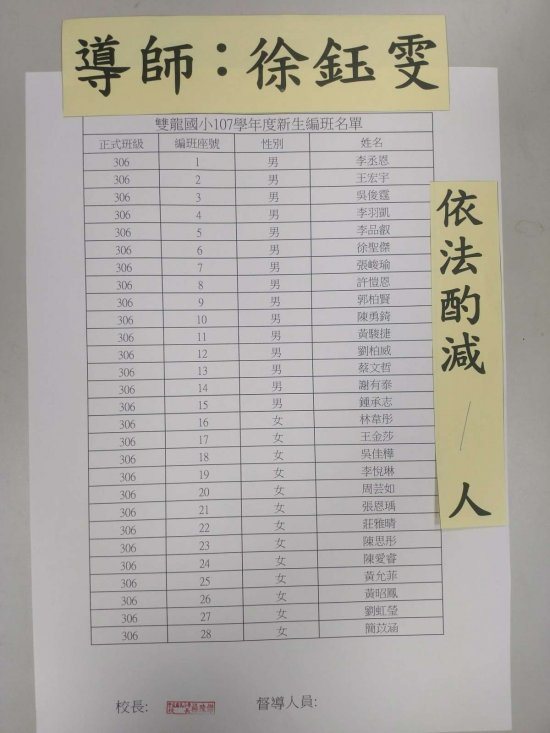 導師：徐鈺雯
雙龍國小107學年度新生編班名單
正式班級 編班座號 性別 姓名
306 1 男 李丞恩
306 2 男 王宏宇
306 3 男 吳俊霆
306 4 男 李羽凱
306 5 男 李品叡
306 6 男 徐聖傑
306 7 男 張峻瑜
306 8 男 許愷恩
306 9 男 郭柏賢
306 10 男 陳勇錡
306 11 男 黃駿捷
306 12 男 劉柏威
306 13 男 蔡文哲
306 14 男 謝有泰
306 15 男 鍾承志
306 16 女 林韋彤
306 17 女 王金莎
306 18 女 吳佳樺
306 19 女 李悅琳
306 20 女 周芸如
306 21 女 張恩瑀
306 22 女 莊雅晴
306 23 女 陳思彤
306 24 女 陳愛睿
306 25 女 黃允菲
306 26 女 黃昭鳳
306 27 女 劉虹瑩
306 28 女 簡苡涵
依法酌減 / 人
校長: 督導人員: